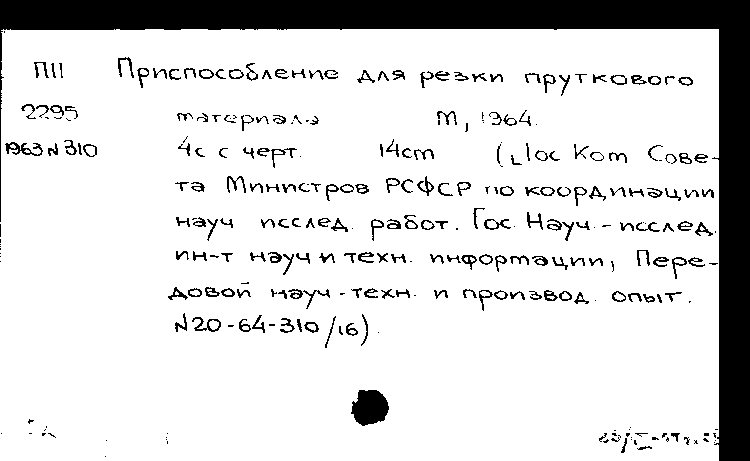 ПII Приспособление для резки пруткового
2295 материала М, 1964.
1963 N 310 4с с черт. 14cm (Гос Ком Сове-
та Министров РСФСР по координации
науч исслед. работ. Гос. Науч.-исслед.
ин-т науч и техн. информации, Пере-
довой науч.-техн. и производ. опыт.
N20-64-310/16).